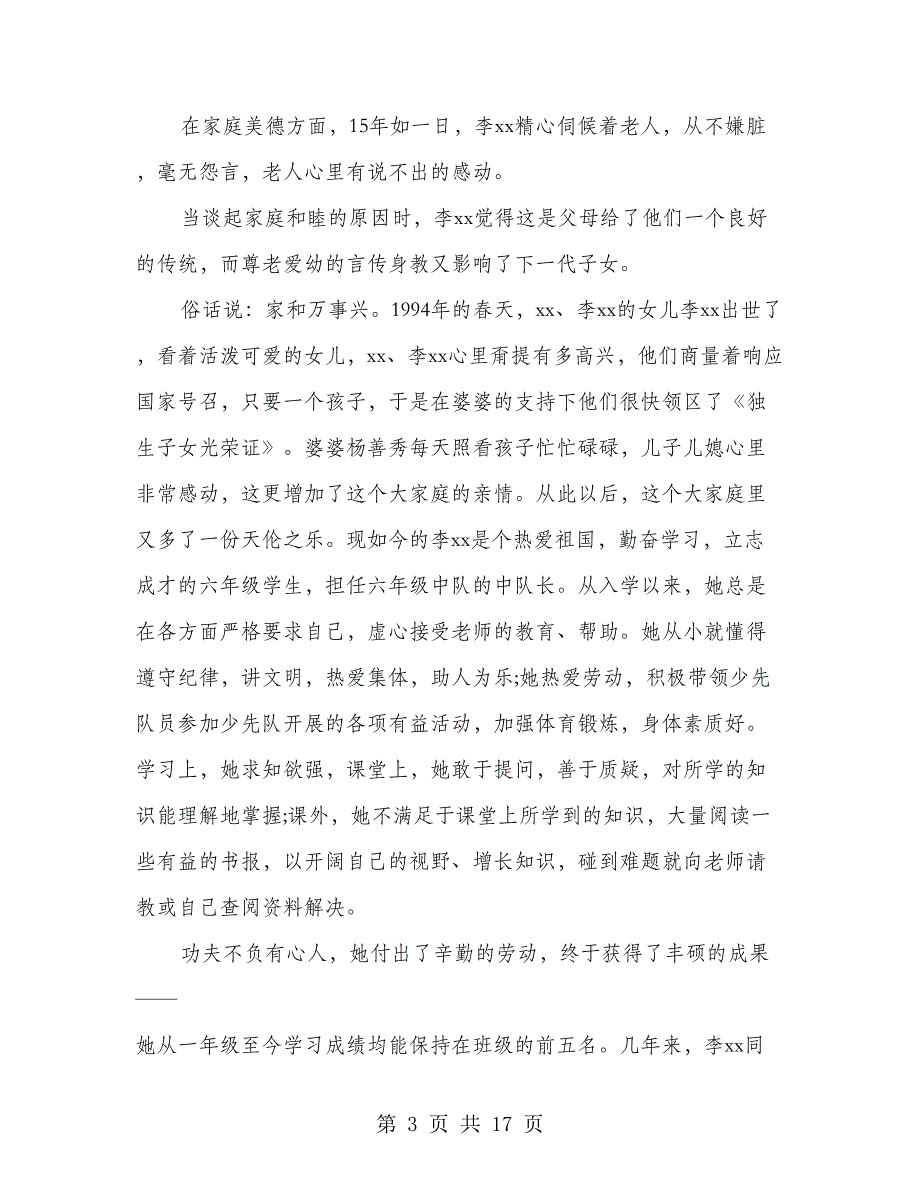 在家庭美德方面，15年如一日，李xx精心伺候着老人，从不嫌脏
，毫无怨言，老人心里有说不出的感动。
当谈起家庭和睦的原因时，李xx觉得这是父母给了他们一个良好
的传统，而尊老爱幼的言传身教又影响了下一代子女。
俗话说：家和万事兴。1994年的春天，xx、李xx的女儿李xx出世了
，看着活泼可爱的女儿，xx、李xx心里甭提有多高兴，他们商量着响应
国家号召，只要一个孩子，于是在婆婆的支持下他们很快领区了《独
生子女光荣证》。婆婆杨善秀每天照看孩子忙忙碌碌，儿子儿媳心里
非常感动，这更增加了这个大家庭的亲情。从此以后，这个大家庭里
又多了一份天伦之乐。现如今的李xx是个热爱祖国，勤奋学习，立志
成才的六年级学生，担任六年级中队的中队长。从入学以来，她总是
在各方面严格要求自己，虚心接受老师的教育、帮助。她从小就懂得
遵守纪律，讲文明，热爱集体，助人为乐;她热爱劳动，积极带领少先
队员参加少先队开展的各项有益活动，加强体育锻炼，身体素质好。
学习上，她求知欲强，课堂上，她敢于提问，善于质疑，对所学的知
识能理解地掌握;课外，她不满足于课堂上所学到的知识，大量阅读一
些有益的书报，以开阔自己的视野、增长知识，碰到难题就向老师请
教或自己查阅资料解决。
功夫不负有心人，她付出了辛勤的劳动，终于获得了丰硕的成果
——
她从一年级至今学习成绩均能保持在班级的前五名。几年来，李xx同
第 3 页 共 17 页